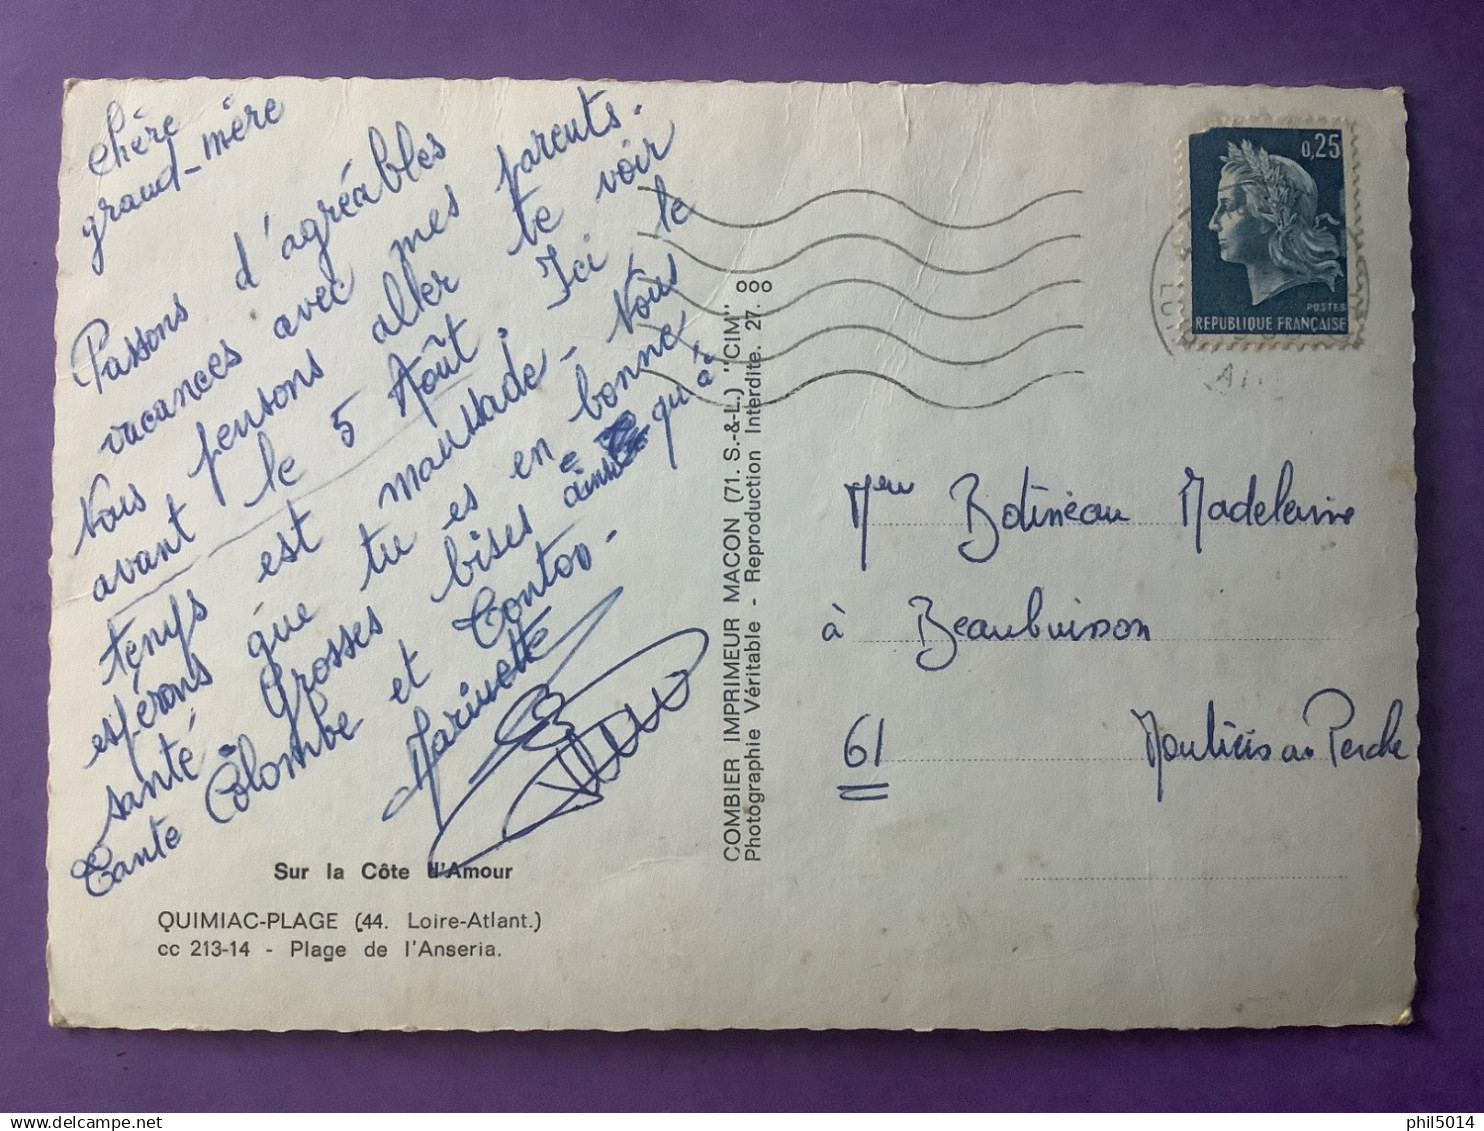 chère
grand-mère
Passons d'agréables
vacances avec mes parents.
Nous pensons aller te voir
avant le 5 Août. Ici le
temps est maussade - Nous
espérons que tu es en bonne
santé. Grosses bises ainsi qu'à
Tante Colombe et Tonton -
Marinette
Sur la Côte d'Amour
QUIMIAC-PLAGE (44. Loire-Atlant.)
cc 213-14 - Plage de l'Anseria.
COMBIER IMPRIMEUR MACON (71. S.-&-L.) "CIM"
Photographie Véritable - Reproduction Interdite. 27.
0,25
POSTES
REPUBLIQUE FRANÇAISE
Mme Botineau Madeleine
à Beaubuisson
61 Moutiers au Perche
phil5014